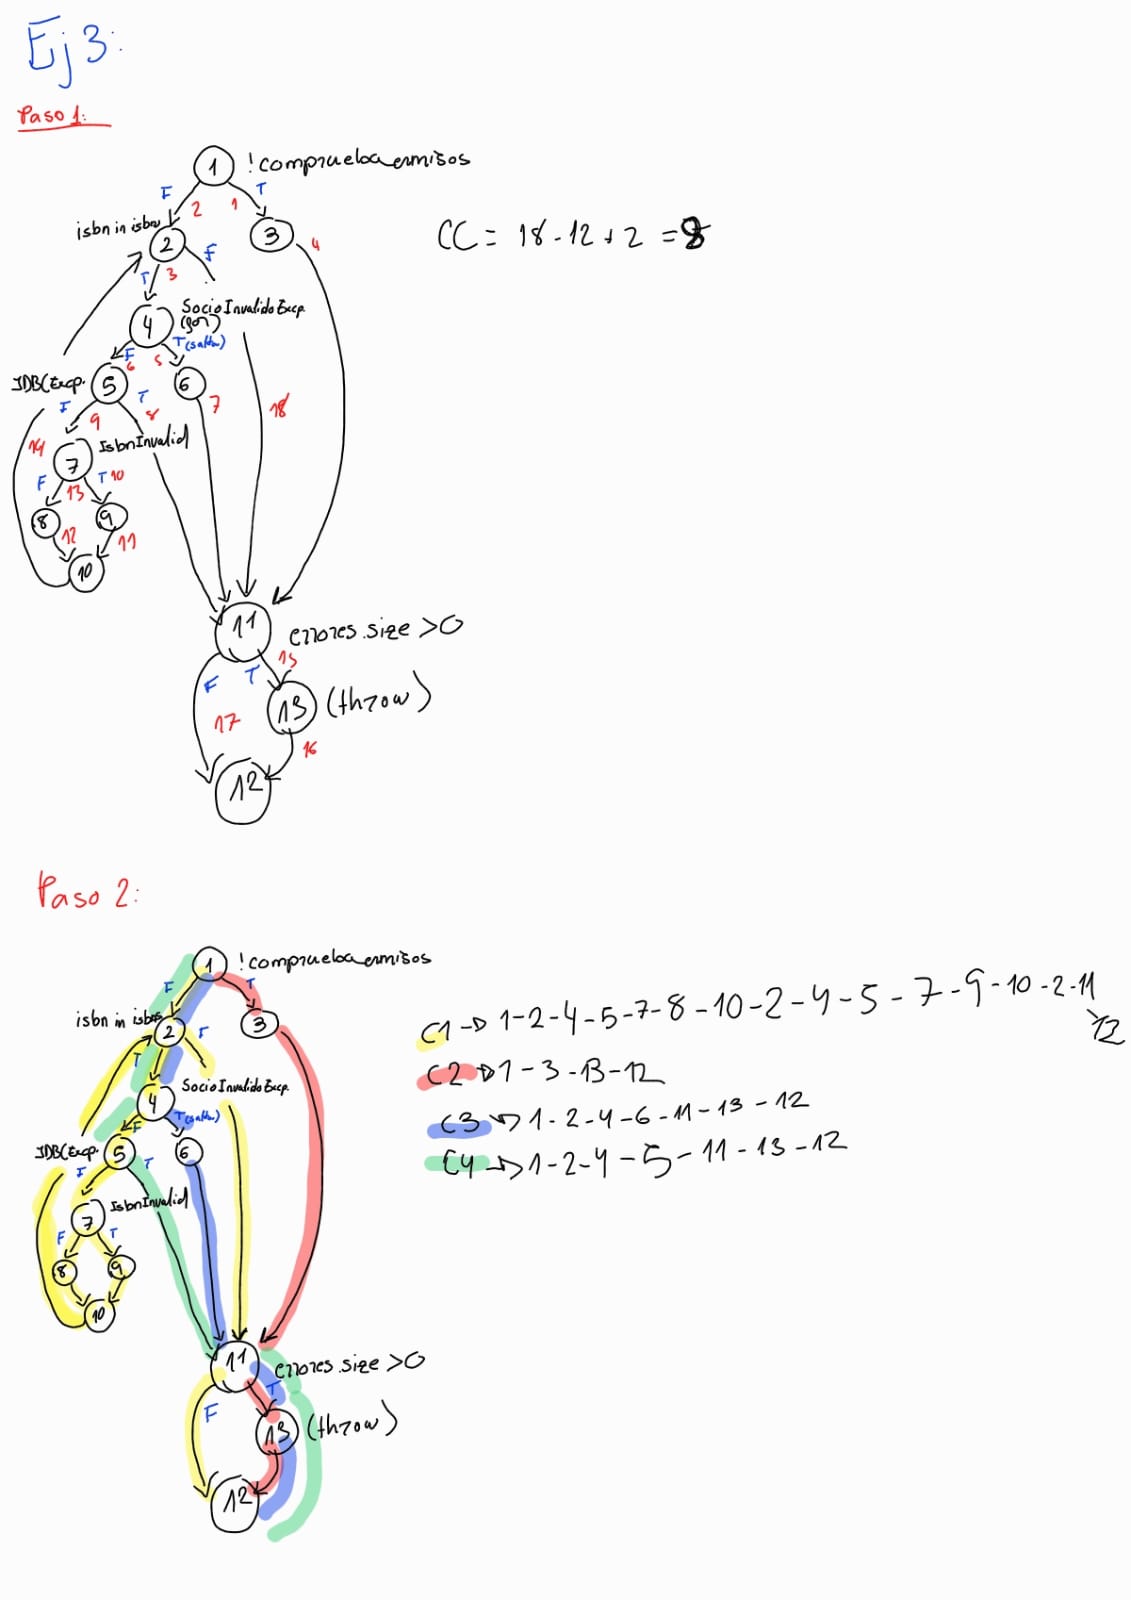 Ej 3:
Paso 1:
1 ! comprueba ermisos
F T
2 1
isbn in isbns
2 F 3 4
T 3
SocioInvalidoExcp.
4 (for)
T (salta)
F 6 5
JDBCExcp. 5 T 6 7 18
F 9 8
14 IsbnInvalid
7
F 13 T 10
8 9
12 11
10
11 errores.size >0
15
F T
17 13 (throw)
16
12
CC = 18 - 12 + 2 = 8
Paso 2:
1 ! comprueba ermisos
F T
isbn in isbns
2 F 3
T
4 SocioInvalidoExcp.
F T (salta)
JDBCExcp. 5 T 6
F
IsbnInvalid
7
F T
8 9
10
11 errores.size >0
F T
13 (throw)
12
C1 → 1-2-4-5-7-8-10-2-4-5-7-9-10-2-11
12
C2 → 1-3-13-12
C3 → 1-2-4-6-11-13-12
C4 → 1-2-4-5-11-13-12